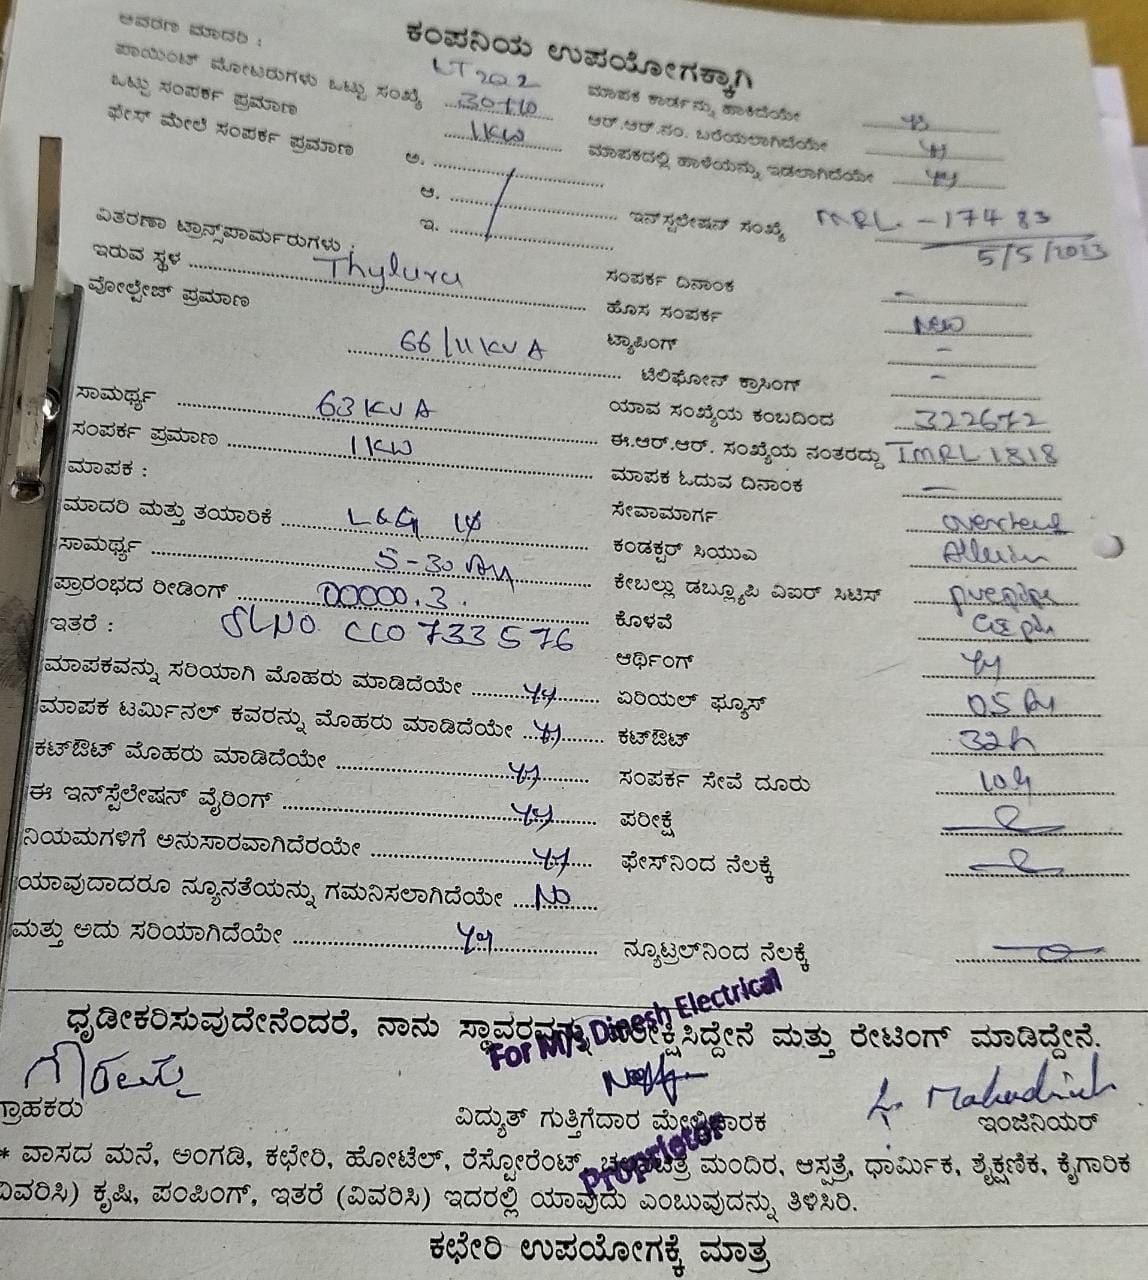 ಕಂಪನಿಯ ಉಪಯೋಗಕ್ಕಾಗಿ
ಆವರಣ ಮಾದರಿ :
LT 202
ಪಾಯಿಂಟ್ ಮೋಟರುಗಳು ಒಟ್ಟು ಸಂಖ್ಯೆ
ಮಾಪಕ ಕಾರ್ಡನ್ನು ಹಾಕಿದೆಯೇ
ಒಟ್ಟು ಸಂಪರ್ಕ ಪ್ರಮಾಣ 1KW
ಆರ್.ಆರ್.ನಂ. ಬರೆಯಲಾಗಿದೆಯೇ
ಫೇಸ್ ಮೇಲೆ ಸಂಪರ್ಕ ಪ್ರಮಾಣ ಅ.
ಮಾಪಕದಲ್ಲಿ ಹಾಳೆಯನ್ನು ಇಡಲಾಗಿದೆಯೇ
ಆ.
ಇ.
ಇನ್‌ಸ್ಟಲೇಷನ್ ಸಂಖ್ಯೆ MRL - 17483
5/5/2023
ವಿತರಣಾ ಟ್ರಾನ್ಸ್‌ಫಾರ್ಮರುಗಳು :
ಇರುವ ಸ್ಥಳ Thyluru
ಸಂಪರ್ಕ ದಿನಾಂಕ -
ವೋಲ್ಟೇಜ್ ಪ್ರಮಾಣ 66/11 KVA
ಹೊಸ ಸಂಪರ್ಕ New
ಟ್ಯಾಪಿಂಗ್ -
ಟೆಲಿಫೋನ್ ಕ್ರಾಸಿಂಗ್ -
ಸಾಮರ್ಥ್ಯ 63 KVA
ಯಾವ ಸಂಖ್ಯೆಯ ಕಂಬದಿಂದ 322672
ಸಂಪರ್ಕ ಪ್ರಮಾಣ 1KW
ಈ.ಆರ್.ಆರ್. ಸಂಖ್ಯೆಯ ನಂತರದ್ದು TMRL1818
ಮಾಪಕ :
ಮಾಪಕ ಓದುವ ದಿನಾಂಕ -
ಮಾದರಿ ಮತ್ತು ತಯಾರಿಕೆ L&G 1φ
ಸೇವಾಮಾರ್ಗ
ಸಾಮರ್ಥ್ಯ 5-30
ಕಂಡಕ್ಟರ್ ಸಿಯುಎ
ಪ್ರಾರಂಭದ ರೀಡಿಂಗ್ 00000.3
ಕೇಬಲ್ಲು ಡಬ್ಲ್ಯೂಪಿ ವಿಐರ್ ಸಿಟಿಸ್
ಇತರೆ : SLNO CC0733576
ಕೊಳವೆ
ಆರ್ಥಿಂಗ್
ಮಾಪಕವನ್ನು ಸರಿಯಾಗಿ ಮೊಹರು ಮಾಡಿದೆಯೇ
ಏರಿಯಲ್ ಫ್ಯೂಸ್
ಮಾಪಕ ಟರ್ಮಿನಲ್ ಕವರನ್ನು ಮೊಹರು ಮಾಡಿದೆಯೇ
ಕಟ್‌ಔಟ್
ಕಟ್‌ಔಟ್ ಮೊಹರು ಮಾಡಿದೆಯೇ
ಸಂಪರ್ಕ ಸೇವೆ ದೂರು
ಈ ಇನ್‌ಸ್ಟೆಲೇಷನ್ ವೈರಿಂಗ್
ಪರೀಕ್ಷೆ
ನಿಯಮಗಳಿಗೆ ಅನುಸಾರವಾಗಿದೆರಯೇ
ಫೇಸ್‌ನಿಂದ ನೆಲಕ್ಕೆ
ಯಾವುದಾದರೂ ನ್ಯೂನತೆಯನ್ನು ಗಮನಿಸಲಾಗಿದೆಯೇ NO
ಮತ್ತು ಅದು ಸರಿಯಾಗಿದೆಯೇ
ನ್ಯೂಟ್ರಲ್‌ನಿಂದ ನೆಲಕ್ಕೆ
ಧೃಡೀಕರಿಸುವುದೇನೆಂದರೆ, ನಾನು ಸ್ಥಾವರವನ್ನು ಪರೀಕ್ಷಿಸಿದ್ದೇನೆ ಮತ್ತು ರೇಟಿಂಗ್ ಮಾಡಿದ್ದೇನೆ.
For M/s Dinesh Electrical
ಗ್ರಾಹಕರು ವಿದ್ಯುತ್ ಗುತ್ತಿಗೆದಾರ ಮೇಲ್ವಿಚಾರಕ ಇಂಜಿನಿಯರ್
Proprietor
* ವಾಸದ ಮನೆ, ಅಂಗಡಿ, ಕಛೇರಿ, ಹೋಟೆಲ್, ರೆಸ್ಟೋರೆಂಟ್, ಚಲನಚಿತ್ರ ಮಂದಿರ, ಆಸ್ಪತ್ರೆ, ಧಾರ್ಮಿಕ, ಶೈಕ್ಷಣಿಕ, ಕೈಗಾರಿಕ
ವಿವರಿಸಿ) ಕೃಷಿ, ಪಂಪಿಂಗ್, ಇತರೆ (ವಿವರಿಸಿ) ಇದರಲ್ಲಿ ಯಾವುದು ಎಂಬುವುದನ್ನು ತಿಳಿಸಿರಿ.
ಕಛೇರಿ ಉಪಯೋಗಕ್ಕೆ ಮಾತ್ರ